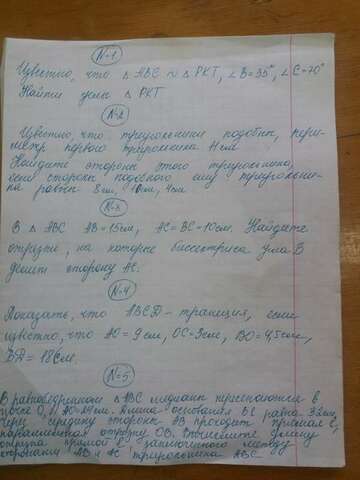 N-1
Известно, что △ ABC ∾ △ PKT, ∠B=35°, ∠C=70°
Найти углы △ PKT
N-2
Известно, что треугольники подобны, пери-
метр первого треугольника 11 см
Найдите стороны этого треугольника,
если стороны подобного ему треугольни-
ка равны 8см, 10см, 4см
В △ ABC AB=15см, AC=BC=10см. Найдите
отрезки, на которые биссектриса угла B
делит сторону AC.
N-4
Доказать, что ABCD - трапеция, если
известно, что AO=9см, OC=3см, BO=4,5см,
BD= 18см.
N-5
В равнобедренном △ ABC медианы пересекаются в
точке O, Длина основания BC равна
через середину стороны AB проходит прямая ℓ,
параллельная отрезку OB. Вычислите длину
отрезка прямой ℓ заключенного между
сторонами AB и AC треугольника ABC